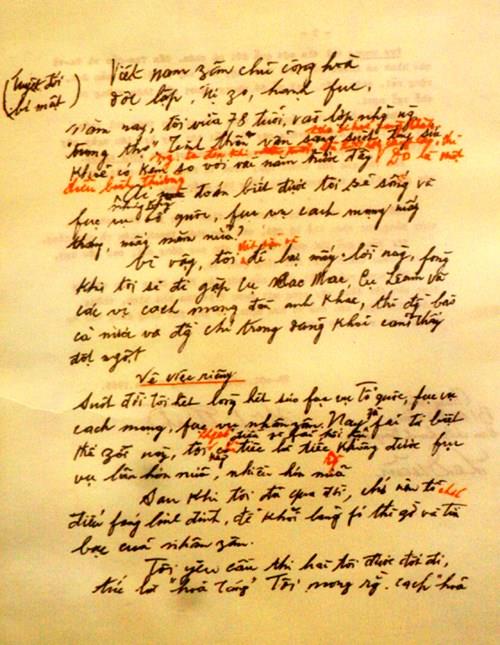 (Tuyệt đối
bí mật)
Việt nam zân chủ cộng hoà
độc lập, tự zo, hạnh fúc.
Năm nay, tôi vừa 78 tuổi, vào lớp những ng
"trung thọ". Tinh thần vẫn sáng suốt, tuy sức
khoẻ có kém so với vài năm trước đây. Đó là một
điều bình thường.
Ai mà đoán biết được tôi sẽ sống và
fục vụ tổ quốc, fục vụ cách mạng mấy
tháng, mấy năm nữa?
Vì vậy, tôi để lại mấy lời này, fòng
khi tôi sẽ đi gặp cụ Các Mác, cụ Lênin và
các vị cách mạng đàn anh khác, thì đg bào
cả nước và đg chí trong đảng khỏi cảm thấy
đột ngột.
Về việc riêng
Suốt đời tôi hết lòng hết sức fục vụ Tổ quốc, fục vụ
cách mạng, fục vụ nhân zân. Nay zù fải từ biệt
thế zới này, tôi không có điều gì fải hối hận,
chỉ tiếc là tiếc không được fục
vụ lâu hơn nữa, nhiều hơn nữa.
Sau khi tôi đã qua đời, chớ nên tổ chức
điếu fúng linh đình, để khỏi lãng fí thì giờ và tiền
bạc của nhân zân.
Tôi yêu cầu thi hài tôi được đốt đi,
tức là "hoả táng". Tôi mong rằng cách "hoả